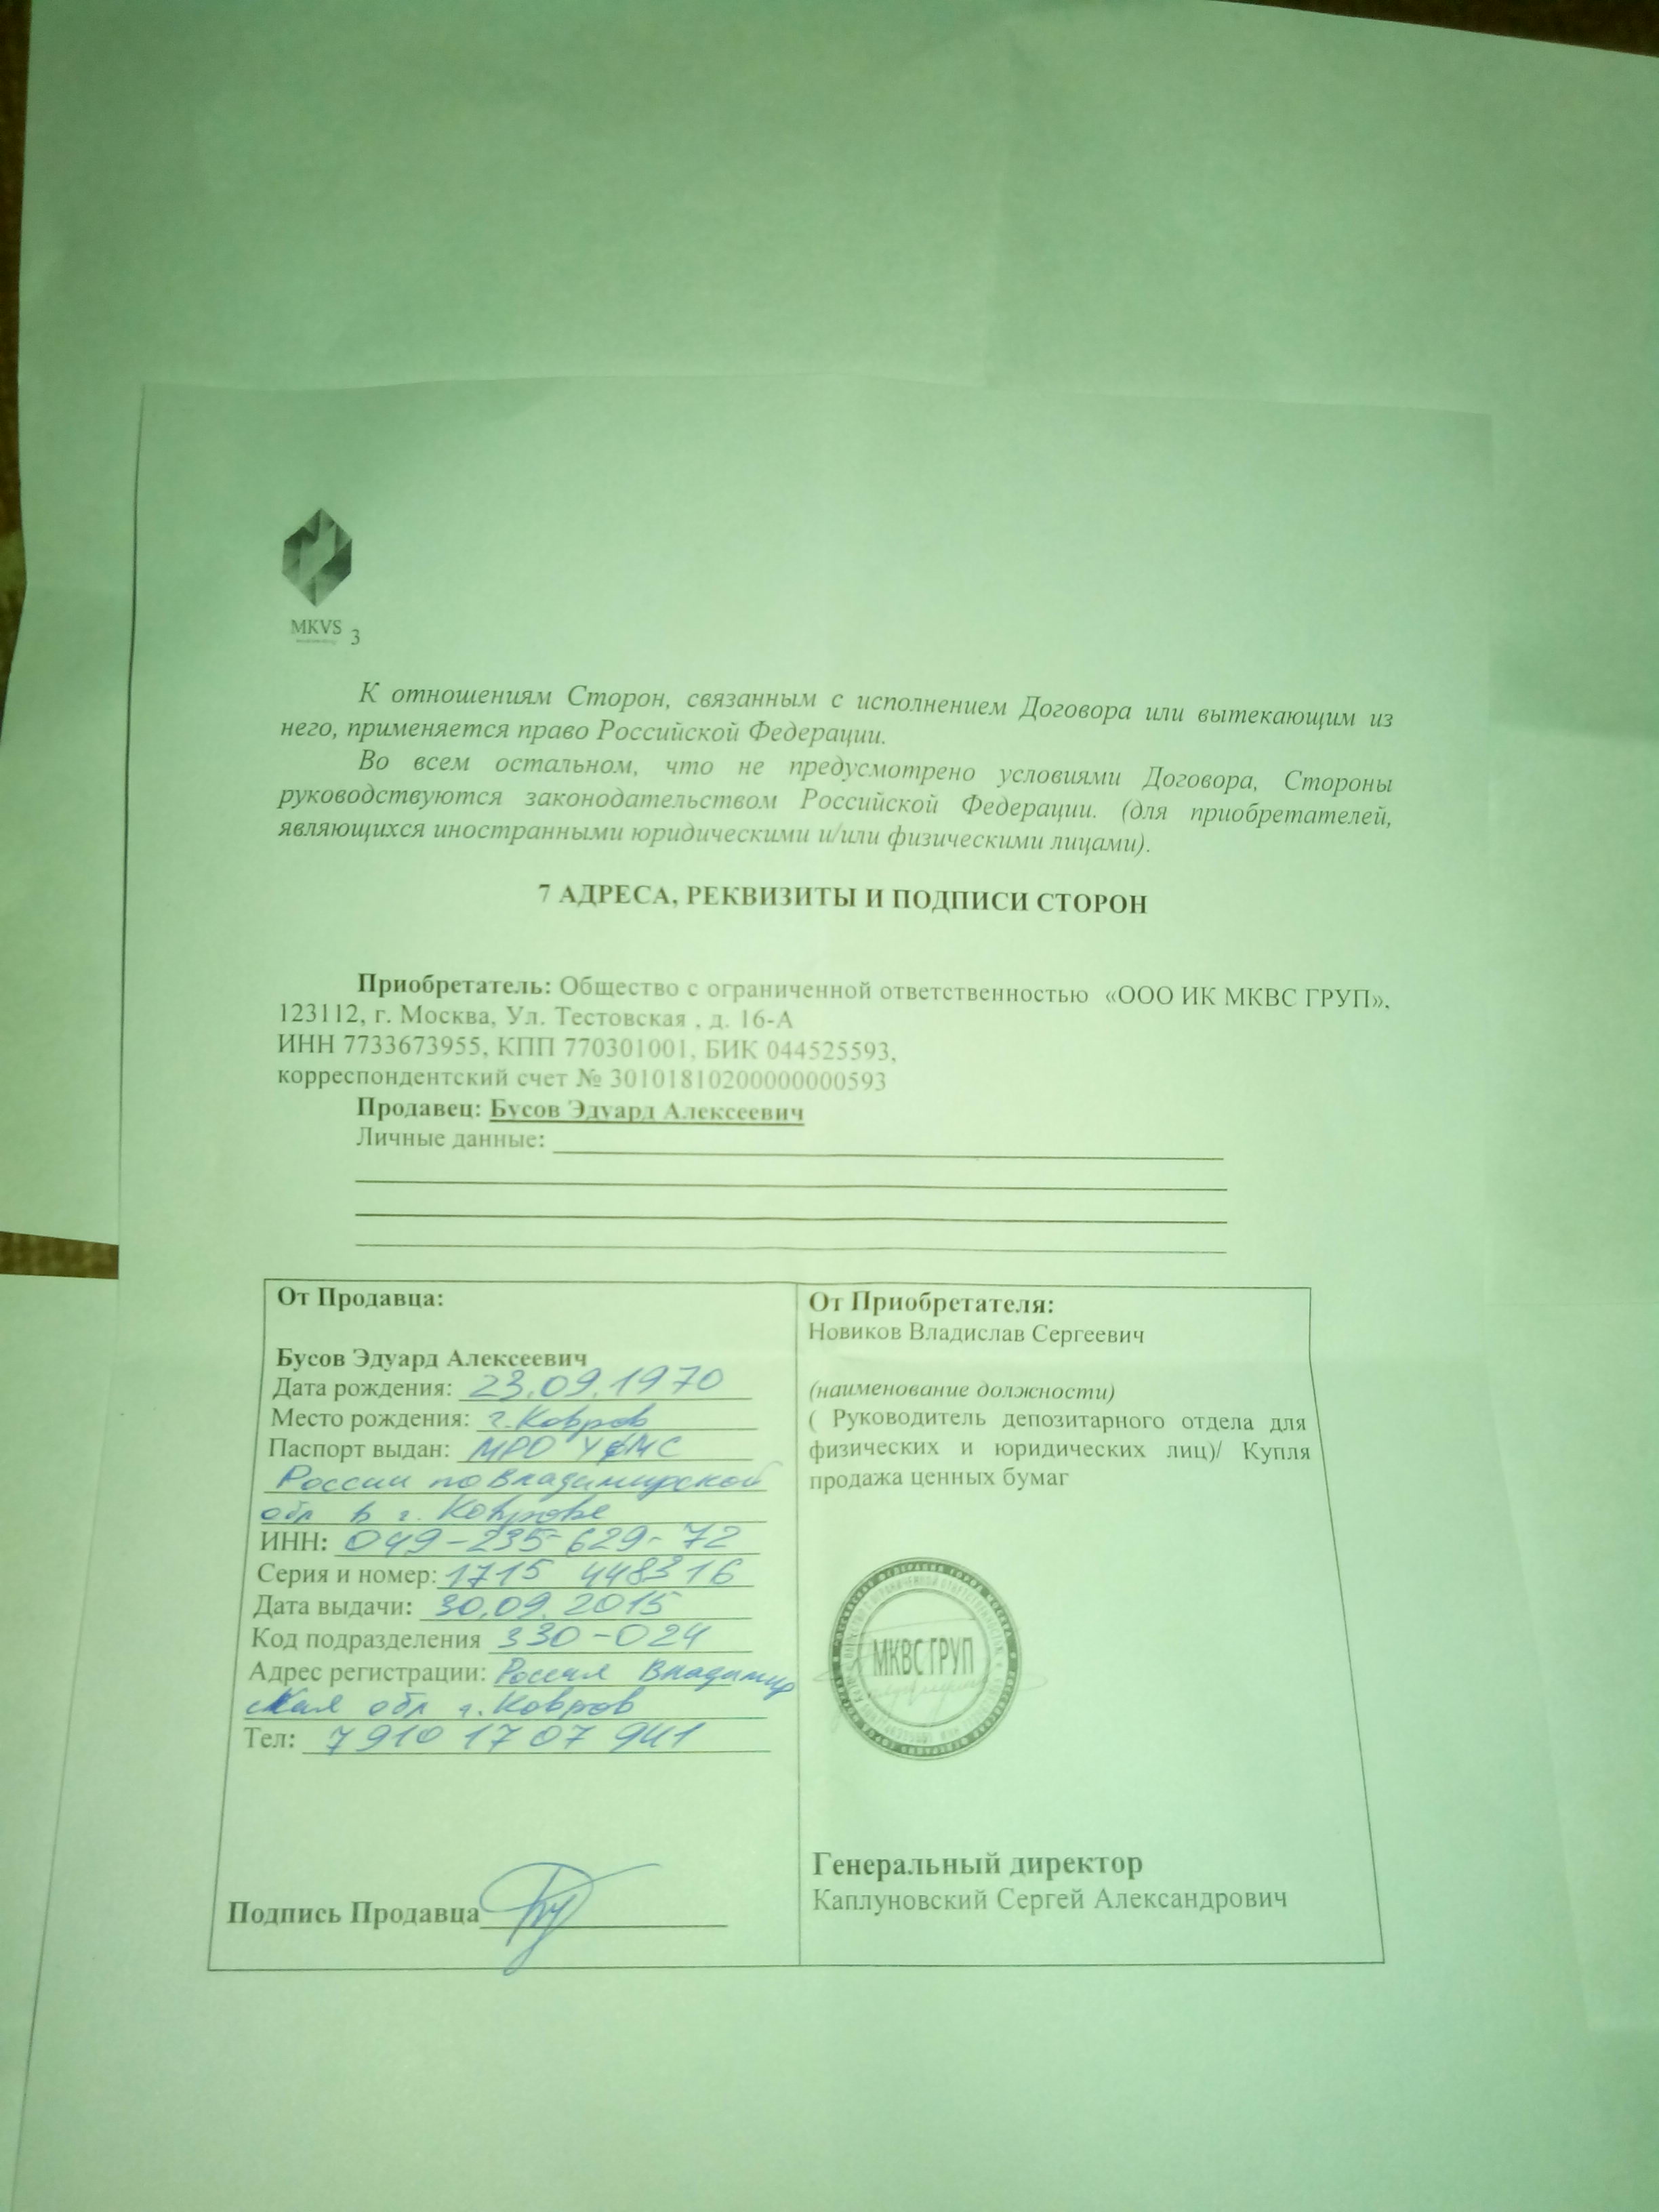 MKVS 3
К отношениям Сторон, связанным с исполнением Договора или вытекающим из
него, применяется право Российской Федерации.
Во всем остальном, что не предусмотрено условиями Договора, Стороны
руководствуются законодательством Российской Федерации. (для приобретателей,
являющихся иностранными юридическими и/или физическими лицами).
7 АДРЕСА, РЕКВИЗИТЫ И ПОДПИСИ СТОРОН
Приобретатель: Общество с ограниченной ответственностью «ООО ИК МКВС ГРУП»,
123112, г. Москва, Ул. Тестовская , д. 16-А
ИНН 7733673955, КПП 770301001, БИК 044525593,
корреспондентский счет № 30101810200000000593
Продавец: Бусов Эдуард Алексеевич
Личные данные:
От Продавца:
Бусов Эдуард Алексеевич
Дата рождения: 23.09.1970
Место рождения: г. Ковров
Паспорт выдан: МРО УФМС
России по Владимирской
обл в г. Коврове
ИНН: 049-235-629-72
Серия и номер: 1715 448316
Дата выдачи: 30.09.2015
Код подразделения 330-024
Адрес регистрации: Россия Владимир
ская обл г. Ковров
Тел: 7 910 17 07 941
Подпись Продавца
От Приобретателя:
Новиков Владислав Сергеевич
(наименование должности)
( Руководитель депозитарного отдела для
физических и юридических лиц)/ Купля
продажа ценных бумаг
МКВС ГРУП
Генеральный директор
Каплуновский Сергей Александрович